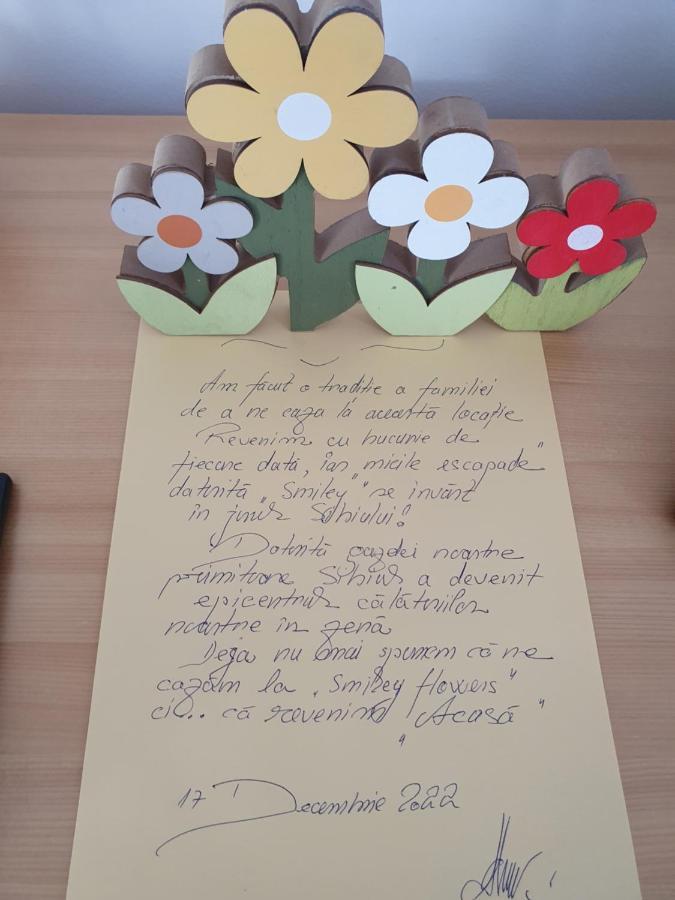 Am făcut o tradiție a familiei
de a ne caza la această locație
Revenim cu bucurie de
fiecare dată, iar micile escapade"
datorită „Smiley" se învârt
în jurul Sibiului!
Datorită gazdei noastre
primitoare Sibiul a devenit
epicentrul călătoriilor
noastre în țară
Deja nu mai spunem că ne
cazăm la „Smiley flowers"
ci... că revenim „Acasă"
17 Decembrie 2022